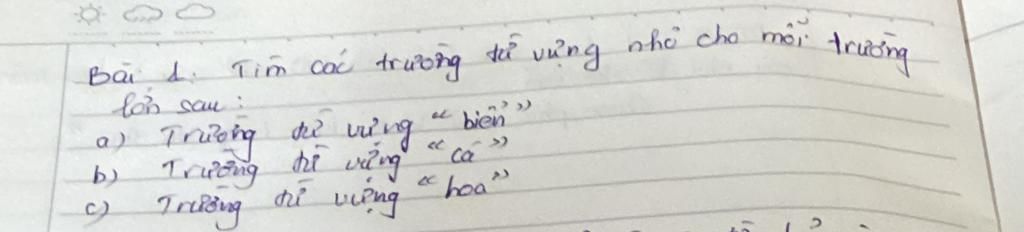 Bài 1. Tìm các trường từ vựng nhỏ cho mỗi trường
lớn sau:
a) Trường từ vựng "biển"
b) Trường từ vựng "cá"
c) Trường từ vựng "hoa"